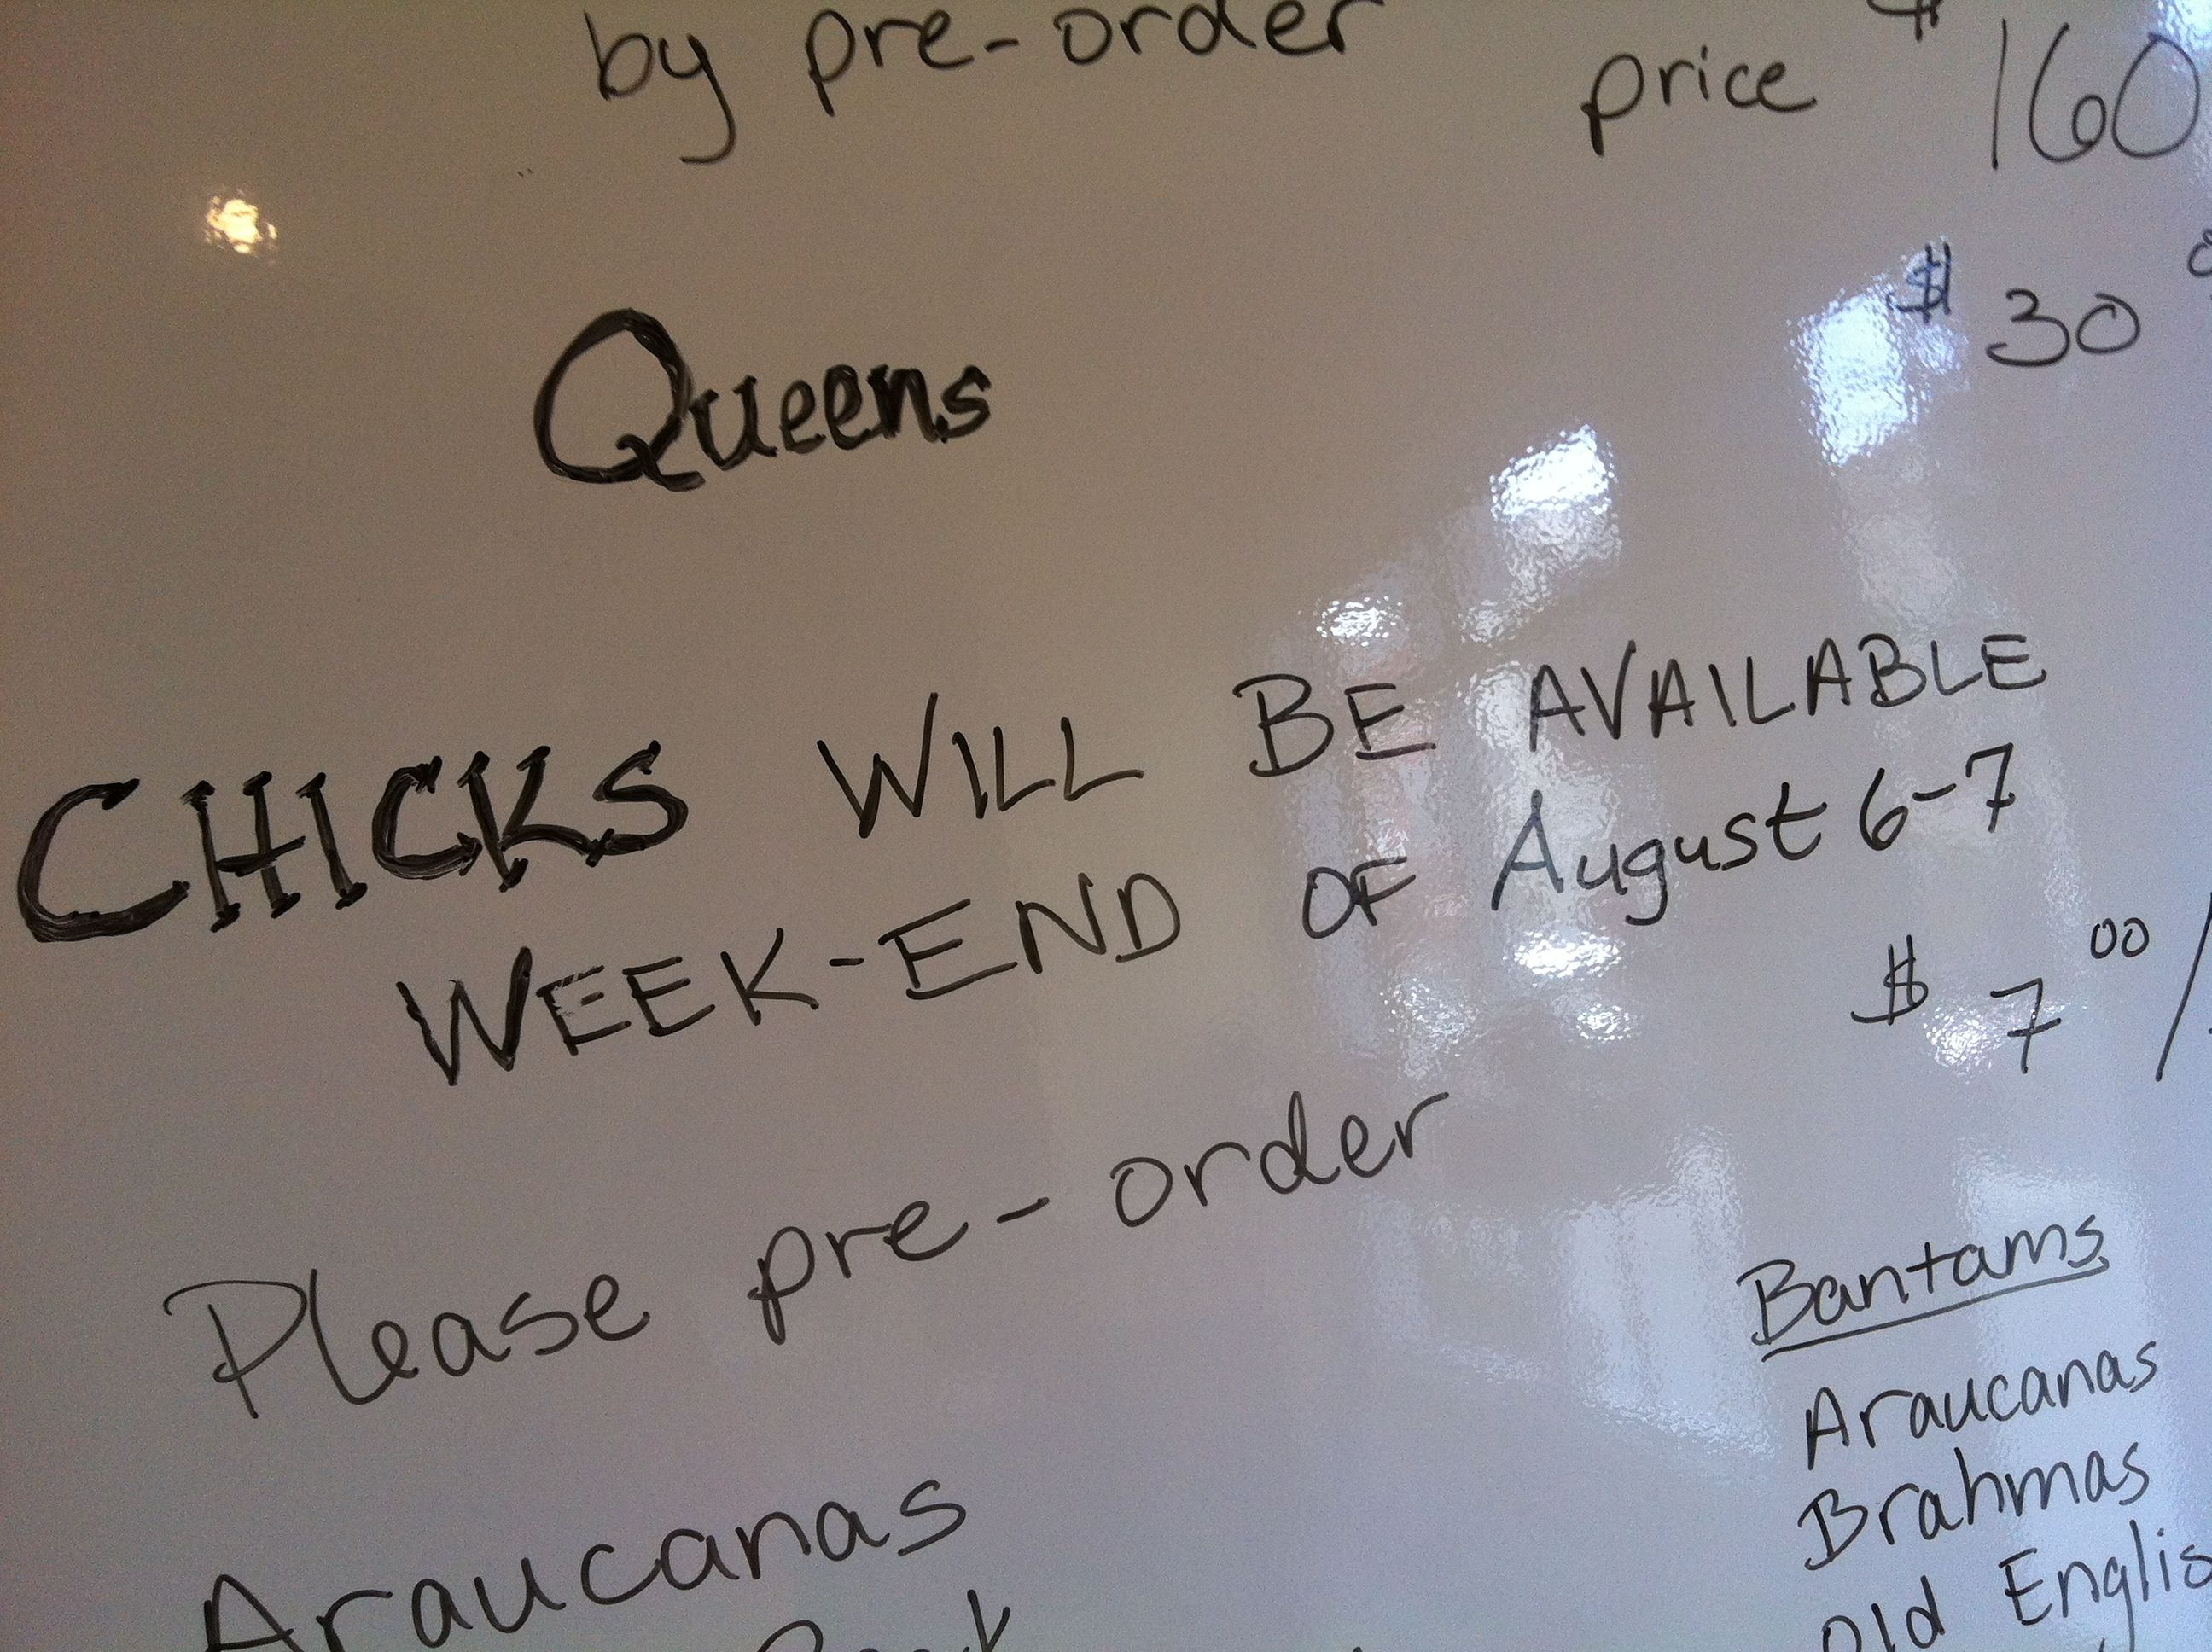 by pre-order price $160
Queens $30
CHICKS WILL BE AVAILABLE
WEEK-END OF August 6-7
$7 00/
Please pre-order
Bantams
Araucanas
Brahmas
Araucanas
Old Englis